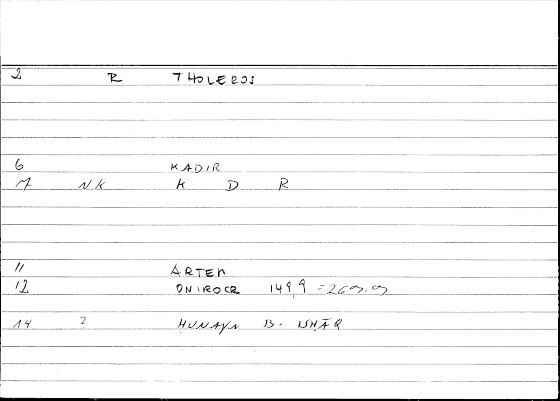 2 R THOLEROS
6 KADIR
7 NK K D R
11 ARTEM
12 ONIROCR 149,9
14 ? HUNAYN B. ISHĀQ